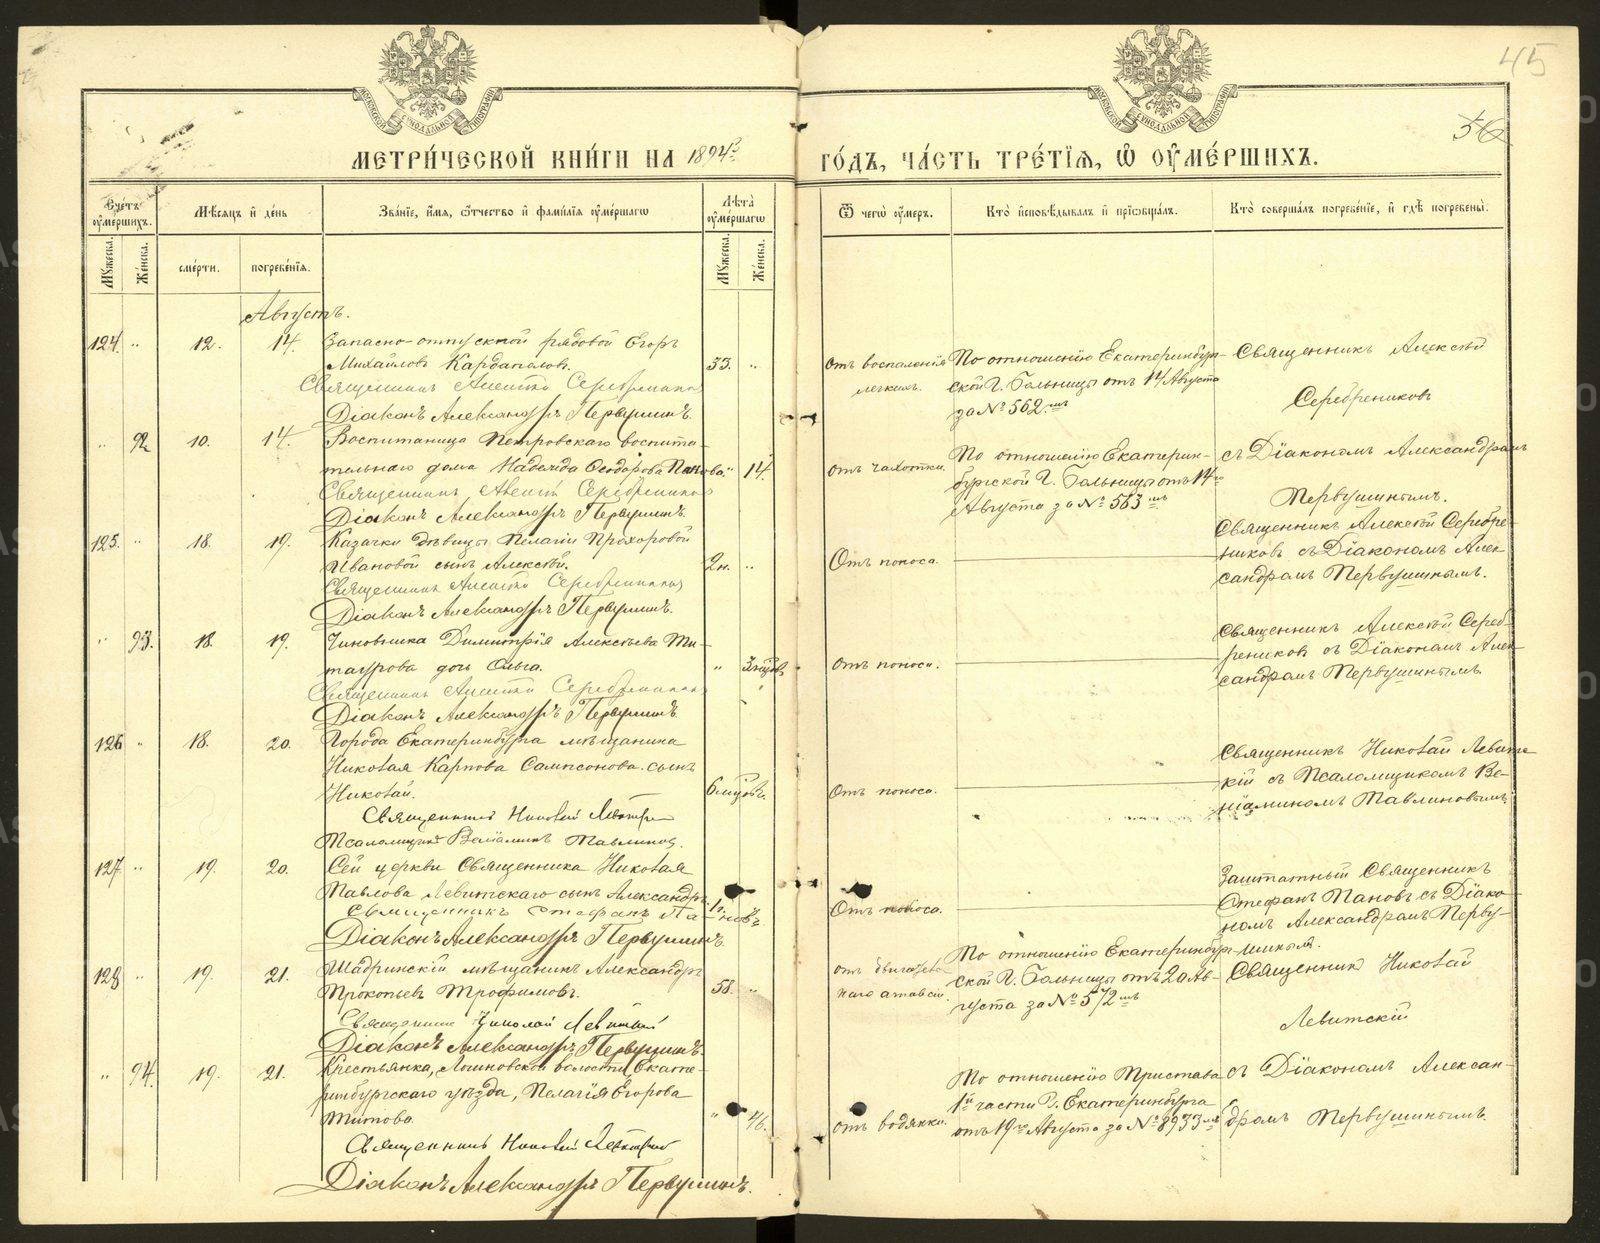 45
56
МЕТРИ́ЧЕСКОЙ КНИ́ГИ НА 1894й ГО́ДЪ, ЧА́СТЬ ТРЕ́ТІЯ, Ѿ ОУМЕ́РШИХЪ.
Сче́тъ оуме́ршихъ.
Мѣ́сяцъ и де́нь
Зва́ніе, и́мя, ѻ́тчество и фами́лія оуме́ршаго
Лѣта̀ оуме́ршаго
Ѿ чегѡ̀ оу́меръ.
Кто̀ исповѣ́дывалъ и пріобща́лъ.
Кто̀ соверша́лъ погребе́ніе, и гдѣ̀ погребены̀.
Му́жеска.
Же́нска.
сме́рти.
погребе́нія.
Му́жеска.
Же́нска.
Августъ.
124. " 12. 14. Запасно-отпускной рядовой Егоръ
Михайловъ Кардапаловъ. 33. "
Священникъ Алексѣй Серебрениковъ
Діаконъ Александръ Первушинъ.
Отъ воспаленія
легкихъ.
По отношенію Екатеринбург-
ской Г. Больницы отъ 14 Августа
за № 562.мъ
Священникъ Алексѣй
Серебрениковъ
" 92 10. 14. Воспитаница Петровскаго воспита-
тельнаго дома Надежда Ѳеодорова Панова. " 14.
Священникъ Алексѣй Серебрениковъ
Діаконъ Александръ Первушинъ.
отъ чахотки.
По отношенію Екатерин-
бургской Г. Больницы отъ 14го
Августа за № 563мъ
съ Діакономъ Александромъ
Первушинымъ.
125. " 18. 19. Казачки дѣвицы Пелагіи Прохоровой
Ивановой сынъ Алексѣй. 2н. "
Священникъ Алексѣй Серебрениковъ
Діаконъ Александръ Первушинъ.
Отъ поноса.
Священникъ Алексѣй Серебре-
никовъ съ Діакономъ Алек-
сандромъ Первушинымъ.
" 93. 18. 19. Чиновника Димитрія Алексѣева Ти-
таурова дочь Ольга. "
Священникъ Алексѣй Серебрениковъ
Діаконъ Александръ Первушинъ.
отъ поноса.
Священникъ Алексѣй Сереб-
рениковъ съ Діакономъ Алек-
сандромъ Первушинымъ.
126 " 18. 20. Города Екатеринбурга мѣщанина
Николая Карпова Сампсонова сынъ
Николай.
Священникъ Николай Левитскій
Псаломщикъ Веніаминъ Тавлиновъ.
Отъ поноса.
Священникъ Николай Левит-
кій съ Псаломщикомъ Ве-
ніаминомъ Тавлиновымъ.
127 " 19. 20. Сей церкви Священника Николая
Павлова Левитскаго сынъ Александръ. 1г.
Священникъ Стефанъ Пановъ
Діаконъ Александръ Первушинъ.
Отъ поноса.
Заштатный Священникъ
Стефанъ Пановъ съ Діако-
номъ Александромъ Перву-
шинымъ.
128 " 19. 21. Шадринскій мѣщанинъ Александръ
Прокопьевъ Трофимовъ. 58. "
Священникъ Николай Левитскій
Діаконъ Александръ Первушинъ.
По отношенію Екатеринбург-
ской Г. Больницы отъ 20 Ав-
густа за № 572мъ
Священникъ Николай
Левитскій
" 94. 19. 21. Крестьянка, Екате-
ринбургскаго уѣзда, Пелагія Егорова
Титова. " 46.
Священникъ Николай Левитскій
Діаконъ Александръ Первушинъ.
отъ водянки.
По отношенію Пристава
1й части Г. Екатеринбурга
отъ 19го Августа за № 8933мъ
съ Діакономъ Алексан-
дромъ Первушинымъ